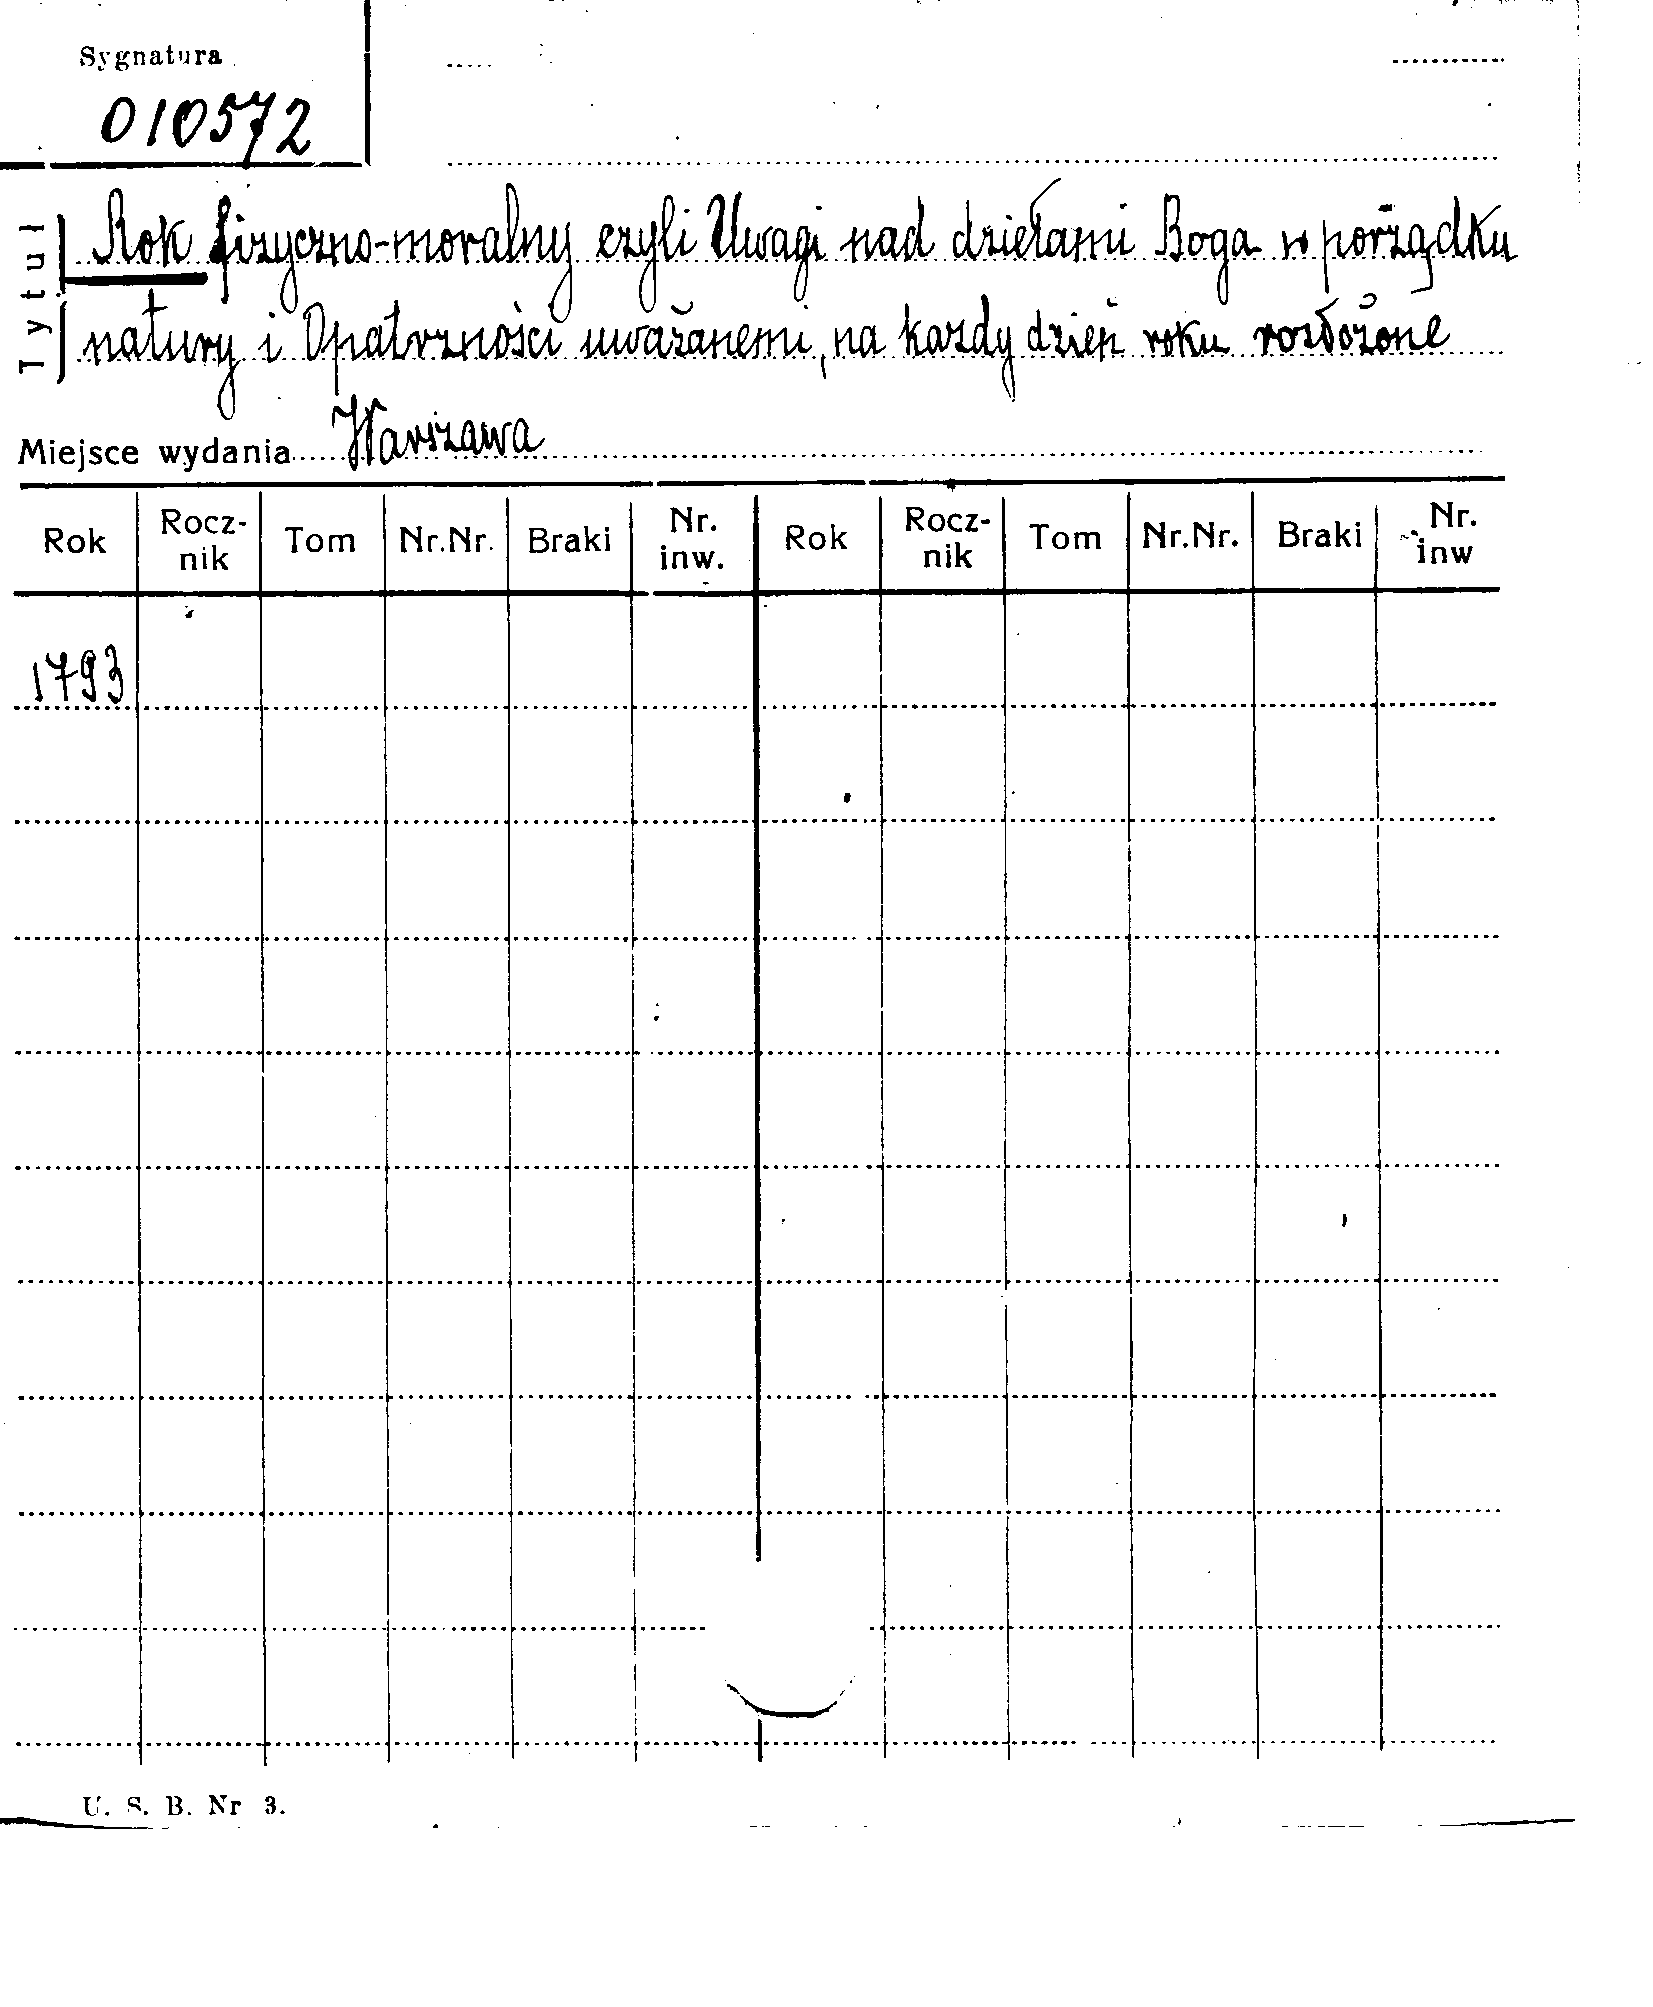 Sygnatura
010572
Tytuł
Rok fizyczno-moralny czyli Uwagi nad dziełami Boga w porządku
natury i Opatrzności uważanemi, na każdy dzień roku rozłożone
Miejsce wydania Warszawa
Rok Rocz-nik Tom Nr.Nr. Braki Nr. inw. Rok Rocz-nik Tom Nr.Nr. Braki Nr. inw
1793
U. S. B. Nr 3.